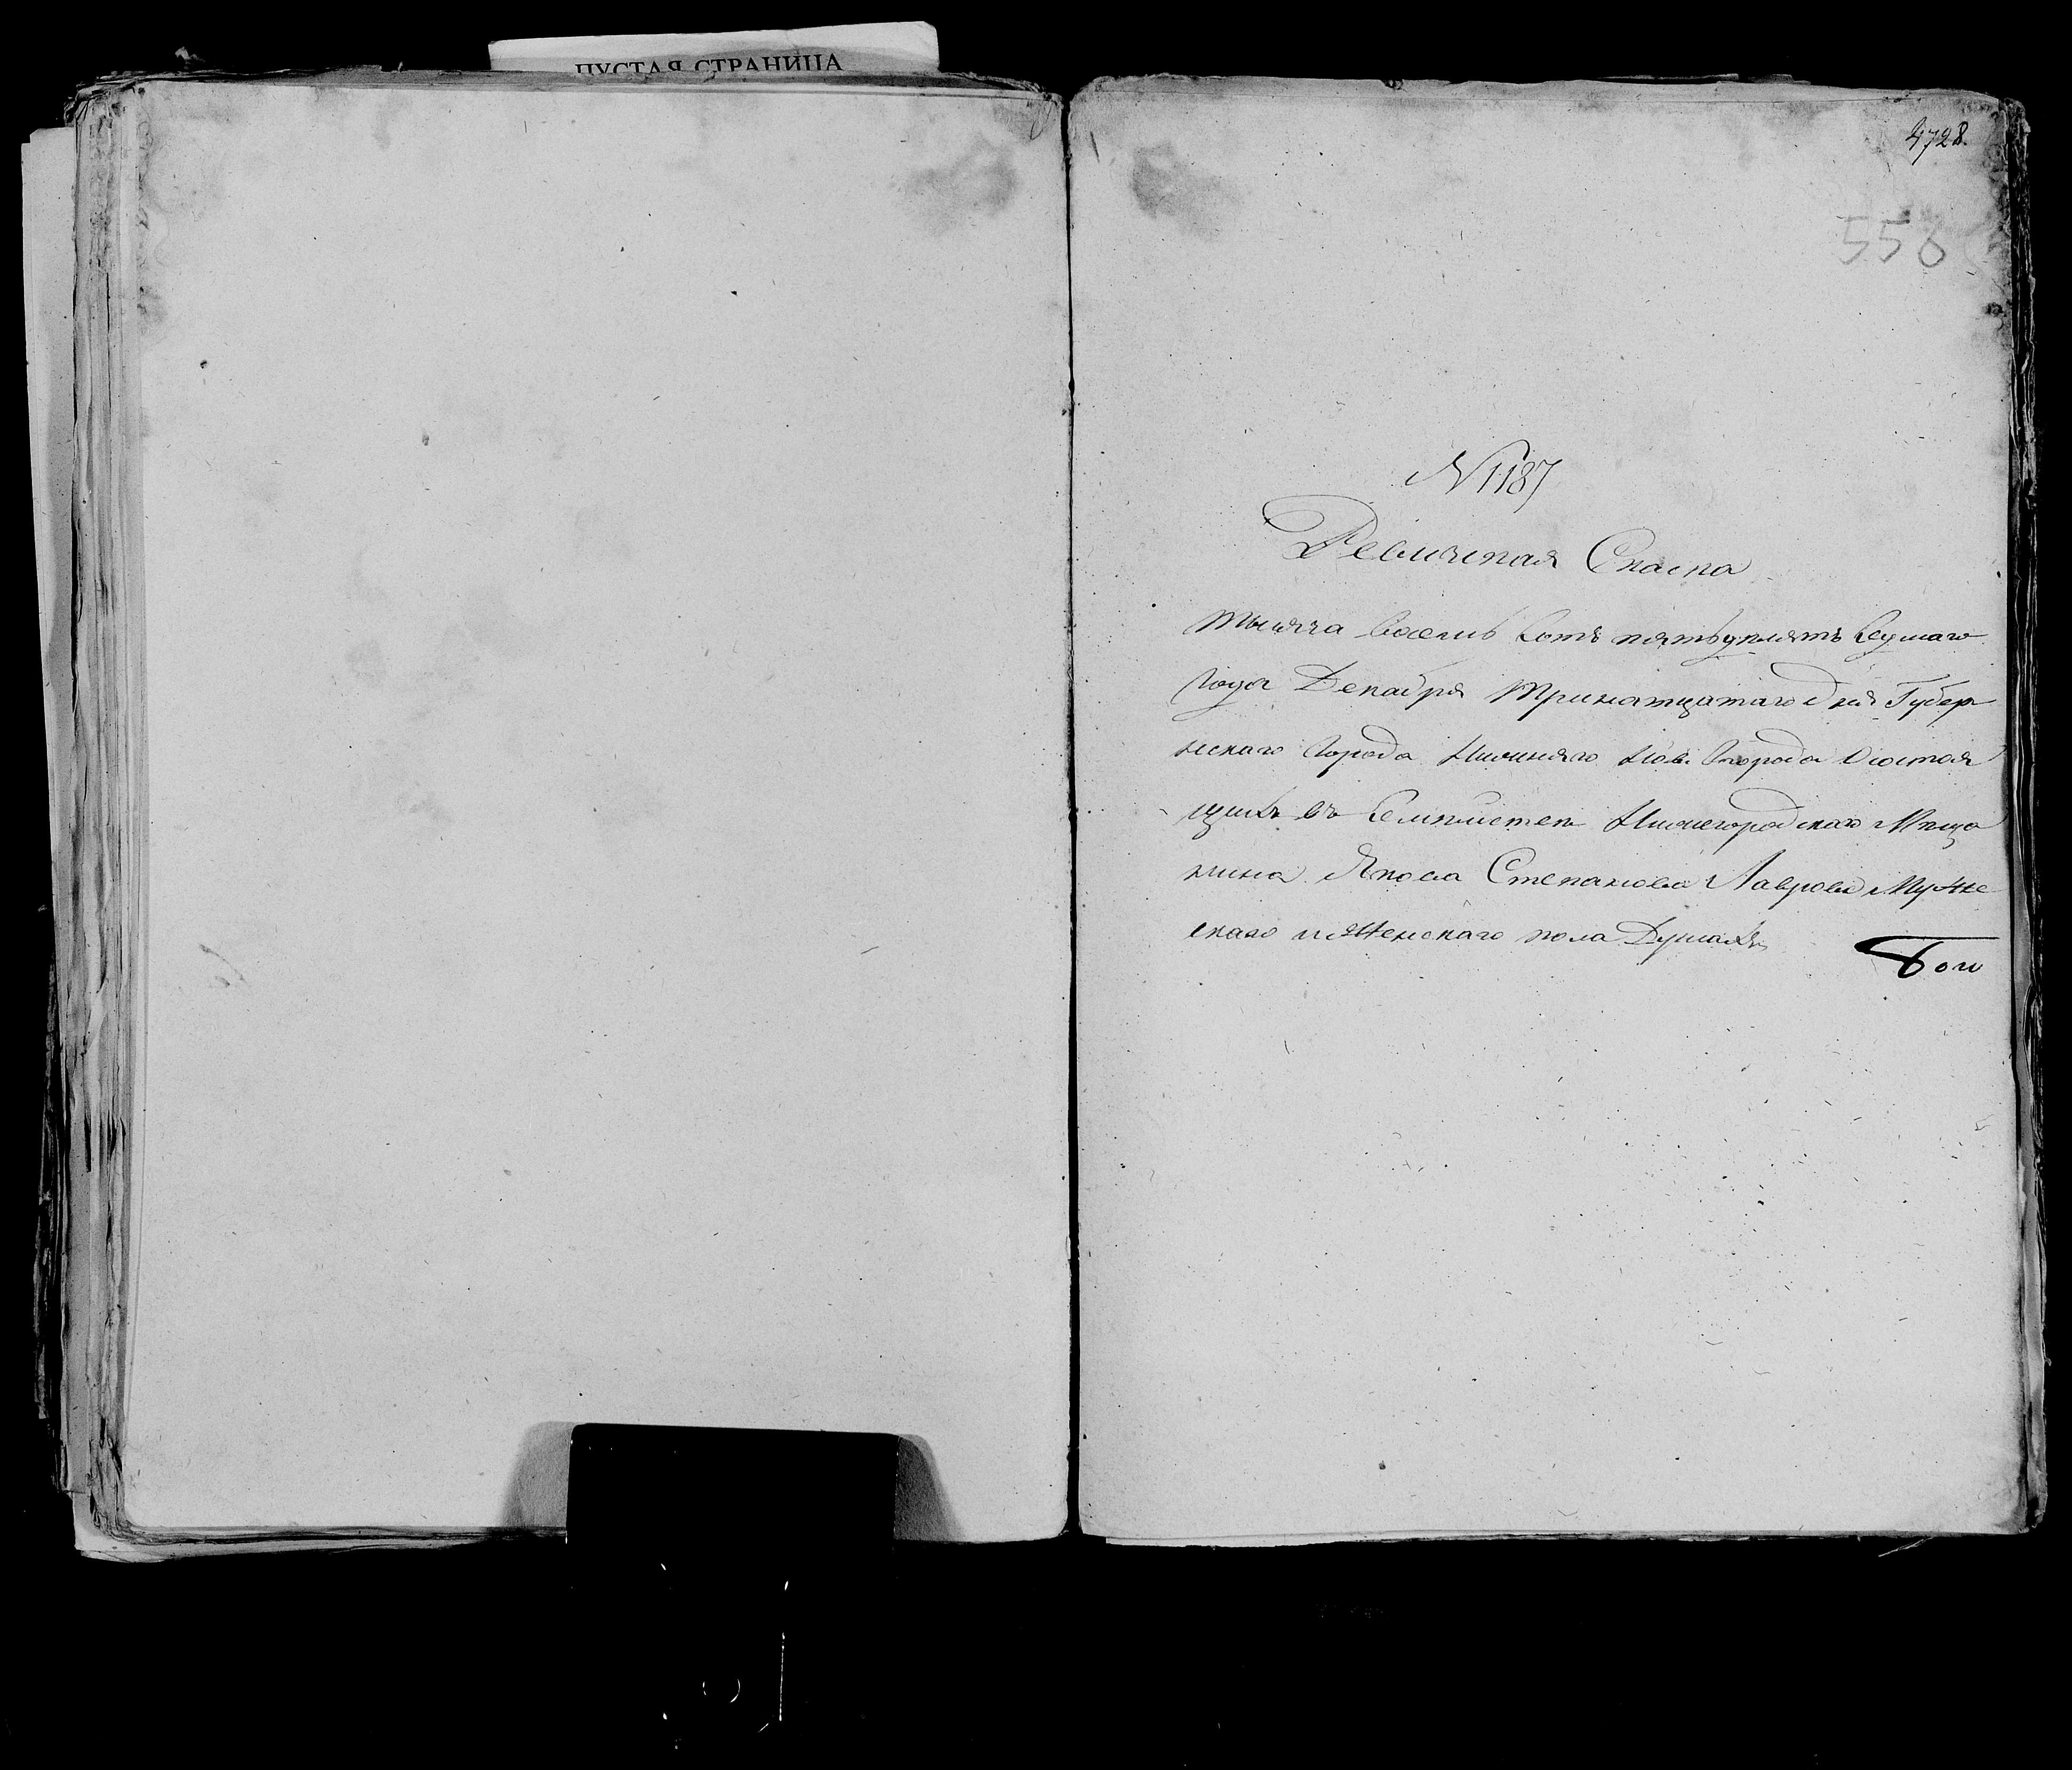 ПУСТАЯ СТРАНИЦА
4728.
556
N 1187
Ревижская Скаска
тысяча восемь сотъ пятьдесятъ седмаго
года Декабря тринатцатаго дня Губер
нскаго города Нижняго Нов Города о состоя
щихъ въ семействе Нижегородскаго Меща
нина Якова Степанова Лаврова Мужес
скаго и женскаго пола Душахъ